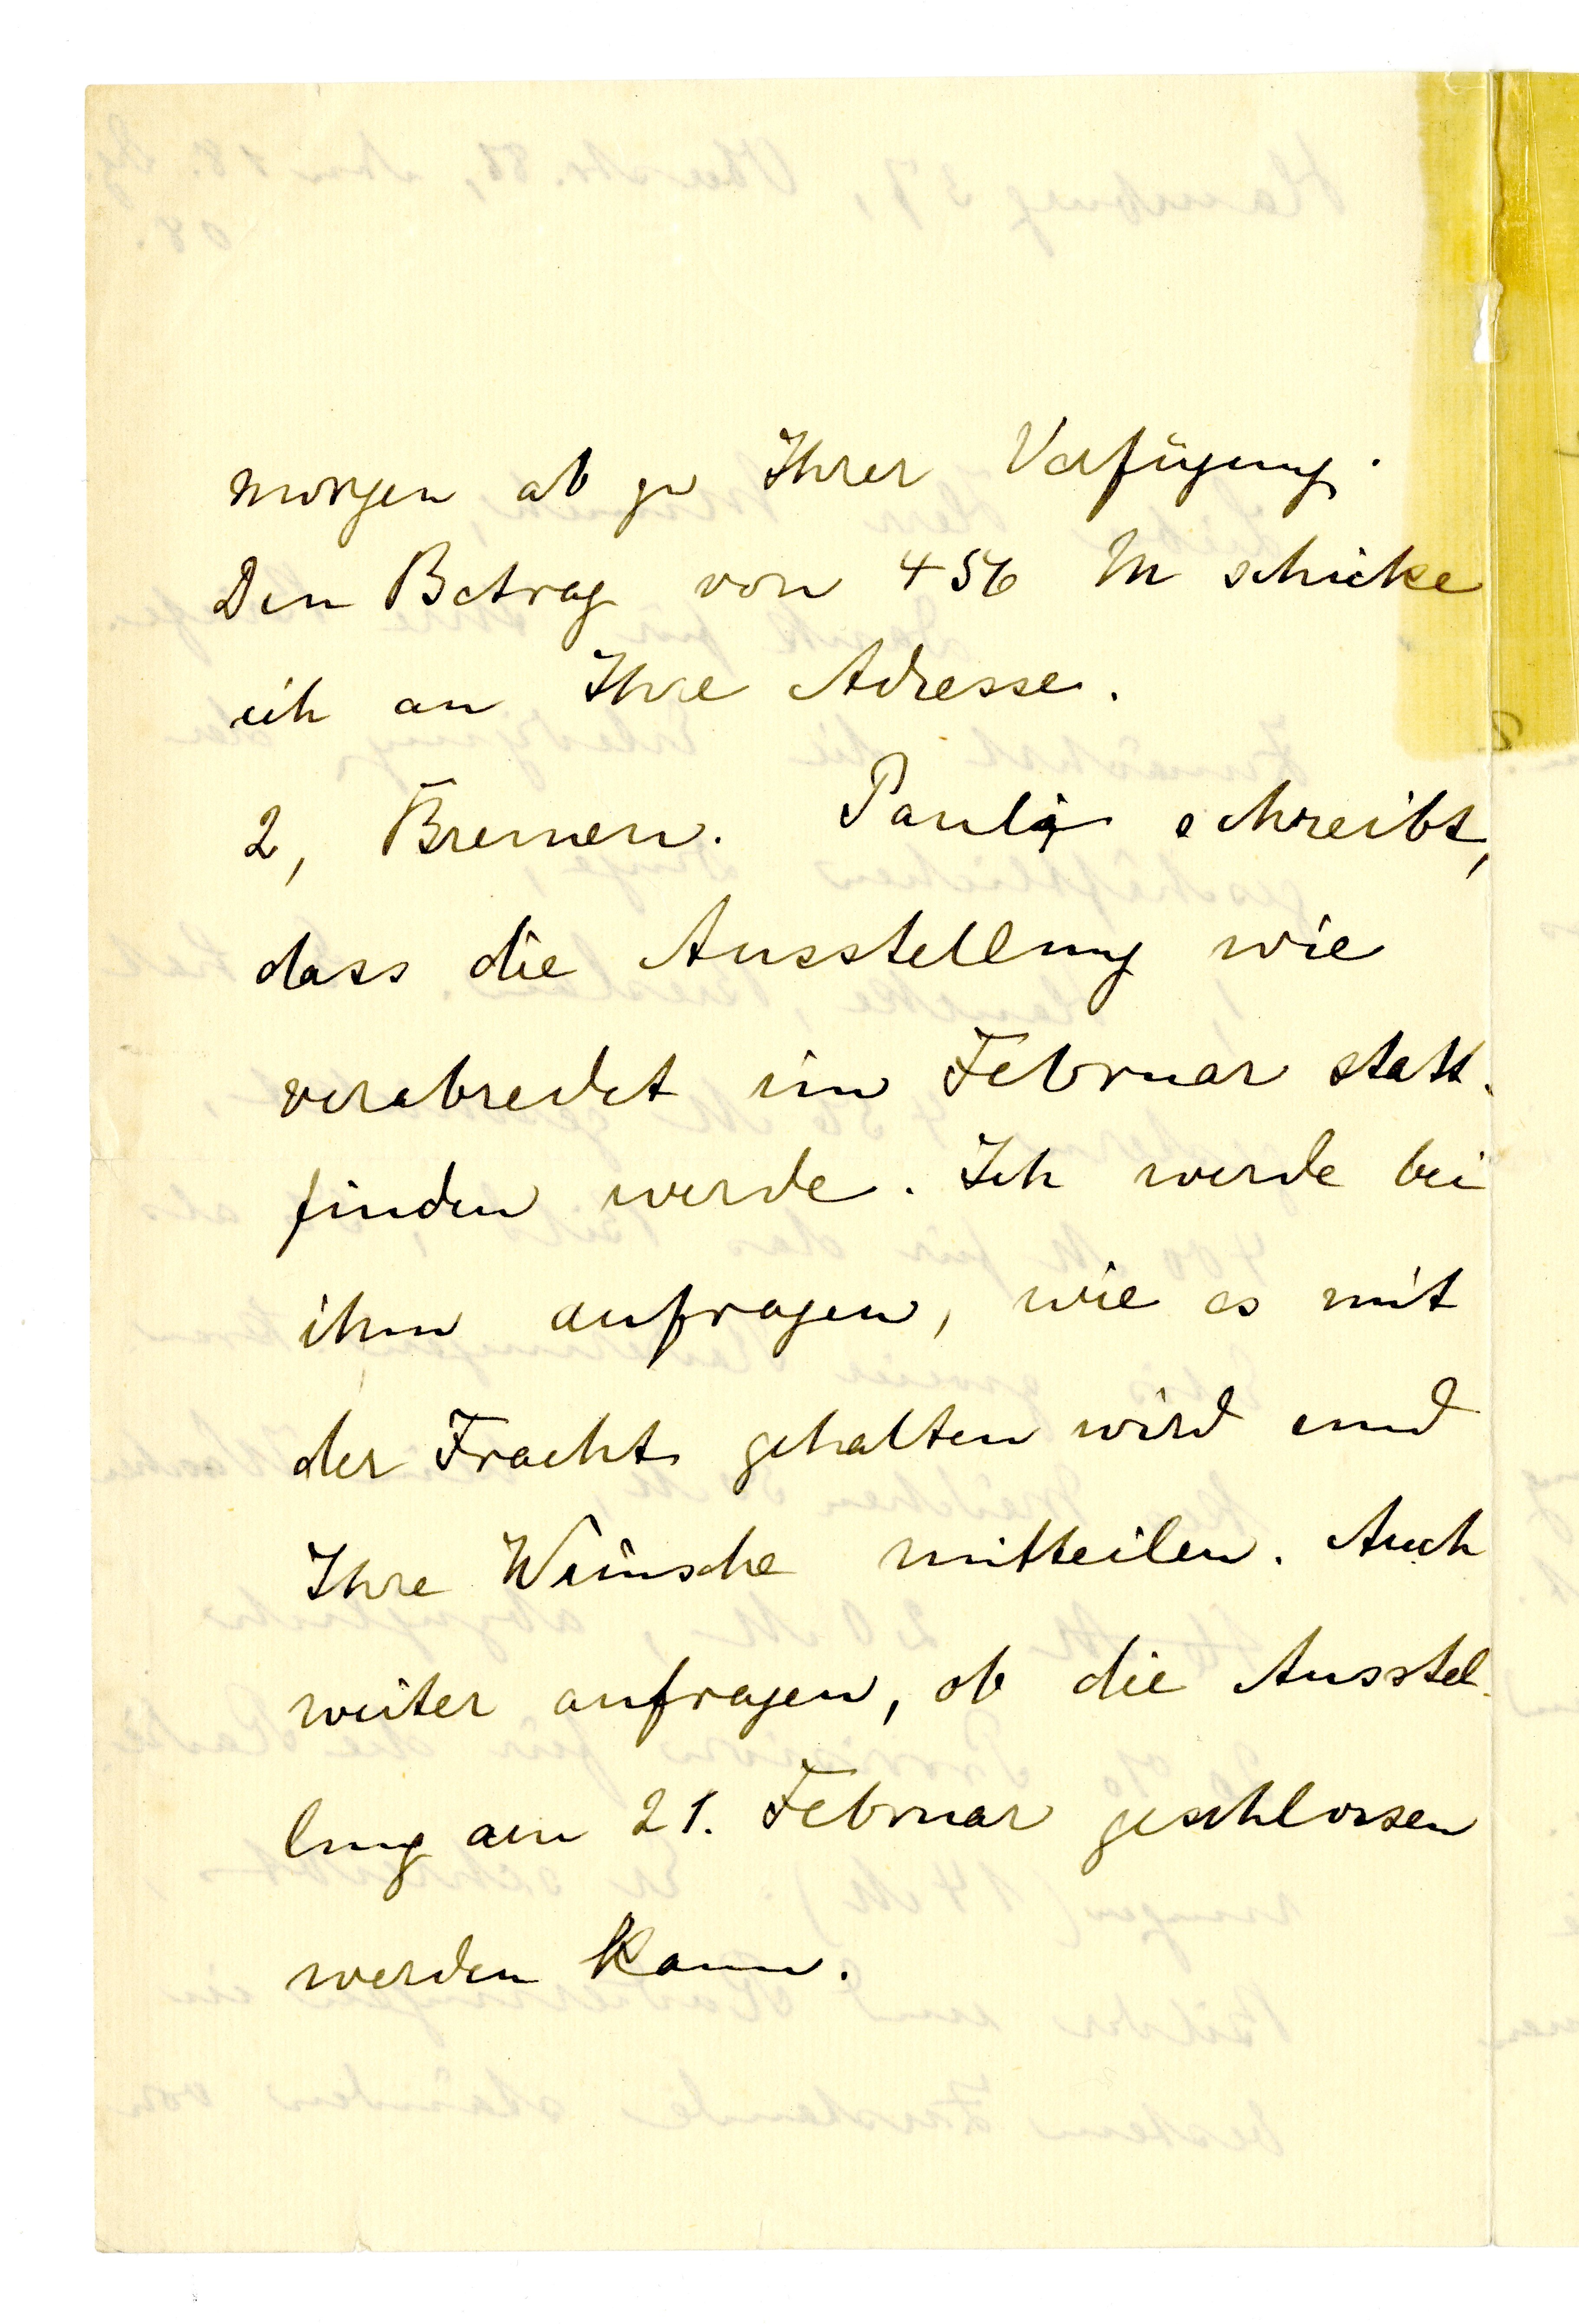 morgen ab zu Ihrer Verfügung.
Den Betrag von 456 M schicke
ich an Ihre Adresse.
2, Bremen. Pauli schreibt,
dass die Ausstellung wie
verabredet im Februar statt-
finden werde. Ich werde bei
ihm anfragen, wie es mit
der Fracht gehalten wird und
Ihre Wünsche mitteilen. Auch
weiter anfragen, ob die Ausstel-
lung am 21. Februar geschlossen
werden kann.